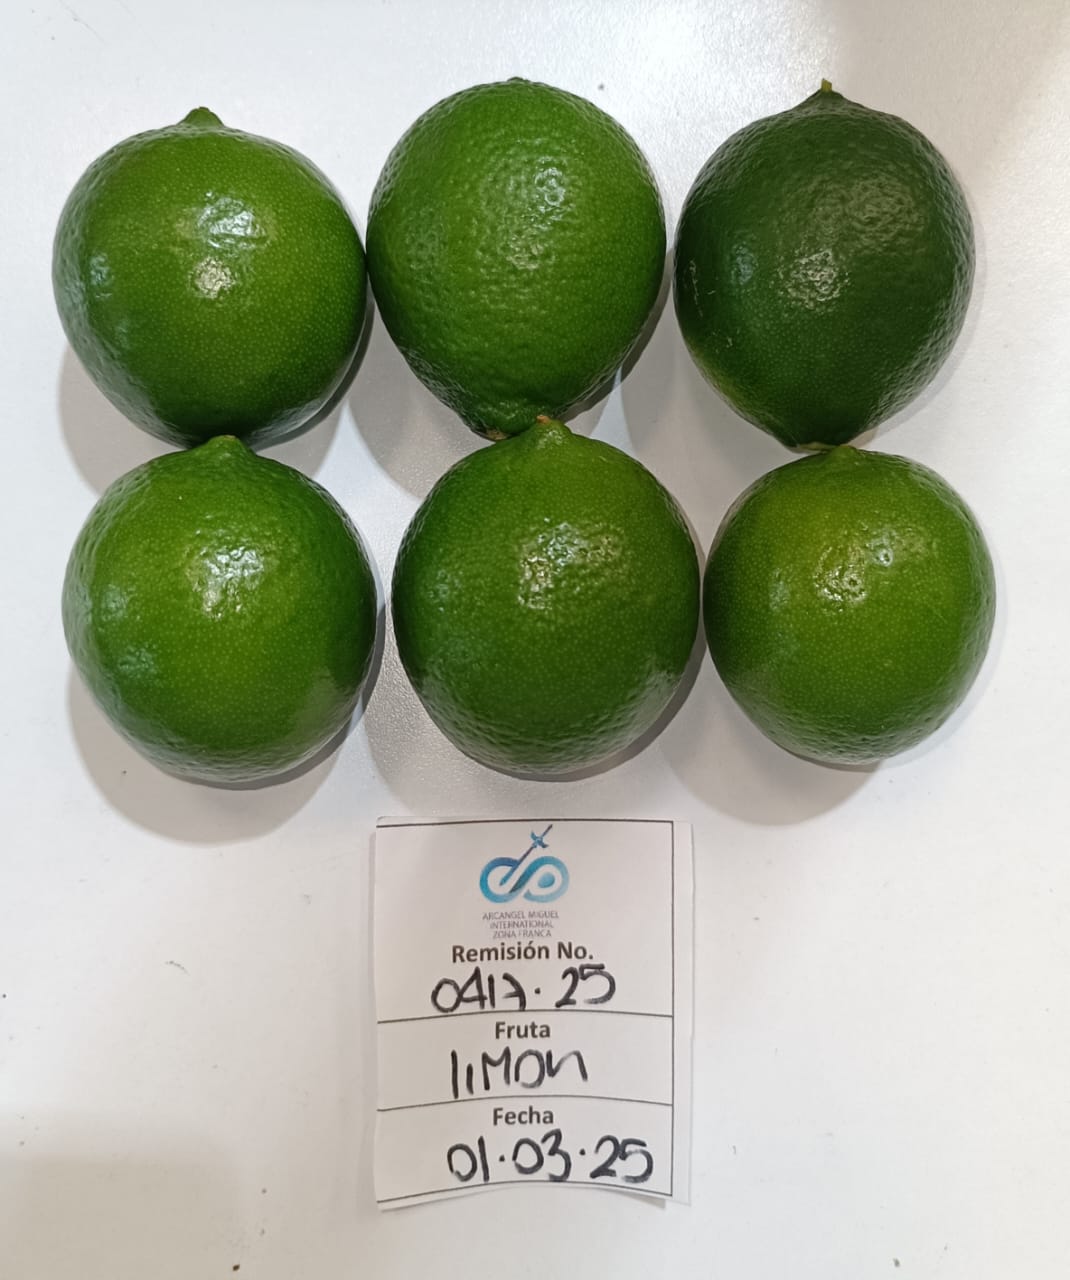 ARCANGEL MIGUEL
INTERNATIONAL
ZONA FRANCA
Remisión No.
0417. 25
Fruta
lIMON
Fecha
01.03.25